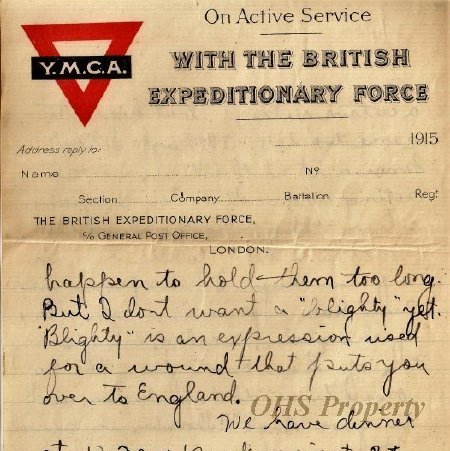 On Active Service
WITH THE BRITISH
EXPEDITIONARY FORCE
Y.M.C.A.
1915
Address reply to:
Name Nº
Section Company Battalion Regt
THE BRITISH EXPEDITIONARY FORCE,
c/o GENERAL POST OFFICE,
LONDON.
happen to hold them too long.
But I dont want a "blighty" yet.
"Blighty" is an expression used
for a wound that puts you
over to England.
OHS Property
We have dinner
at